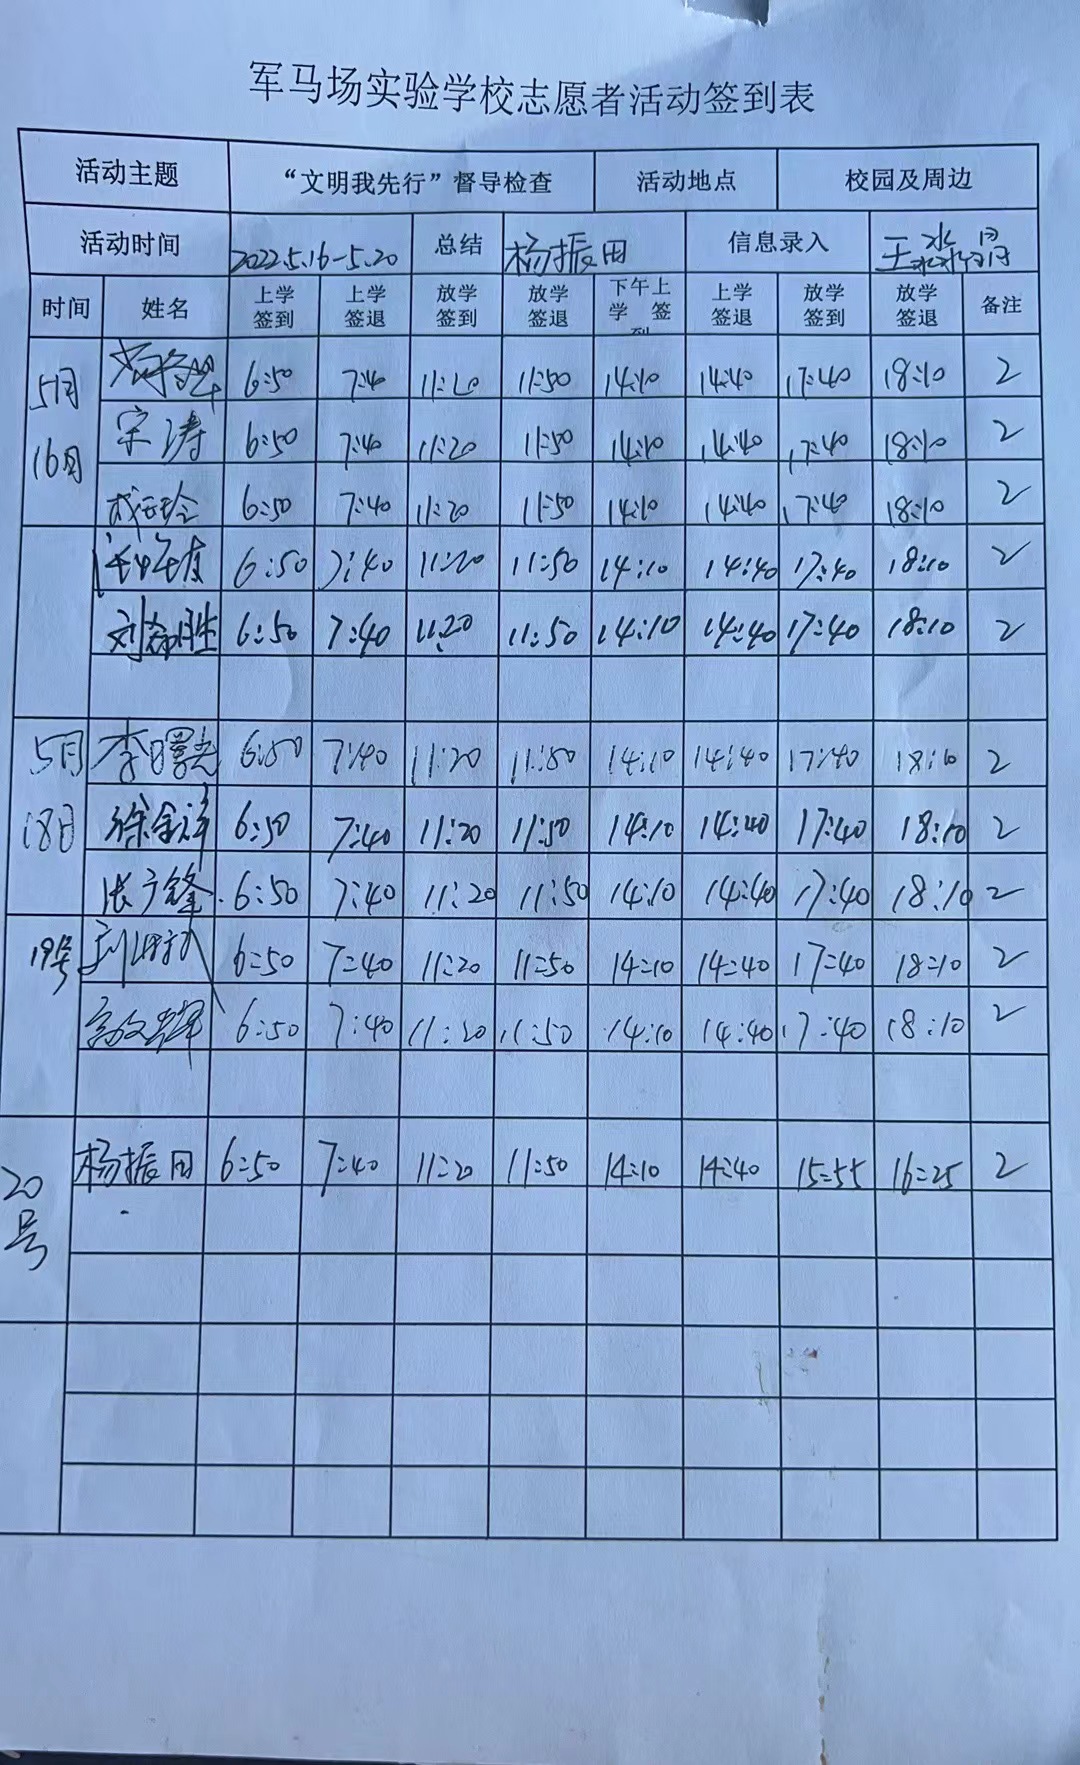 军马场实验学校志愿者活动签到表
活动主题 “文明我先行”督导检查 活动地点 校园及周边
活动时间 2022.5.16-5.20 总结 杨振田 信息录入 王
时间 姓名 上学签到 上学签退 放学签到 放学签退 下午上学 签到 上学签退 放学签到 放学签退 备注
5月16日 6:50 7:40 11:20 11:50 14:10 14:40 17:40 18:10 2
宋涛 6:50 7:40 11:20 11:50 14:10 14:40 17:40 18:10 2
6:50 7:40 11:20 11:50 14:10 14:40 17:40 18:10 2
6:50 7:40 11:20 11:50 14:10 14:40 17:40 18:10 2
刘 胜 6:50 7:40 11:20 11:50 14:10 14:40 17:40 18:10 2
5月18日 李曙光 6:50 7:40 11:20 11:50 14:10 14:40 17:40 18:10 2
徐金祥 6:50 7:40 11:20 11:50 14:10 14:40 17:40 18:10 2
张广锋 6:50 7:40 11:20 11:50 14:10 14:40 17:40 18:10 2
19号 6:50 7:40 11:20 11:50 14:10 14:40 17:40 18:10 2
6:50 7:40 11:20 11:50 14:10 14:40 17:40 18:10 2
20号 杨振田 6:50 7:40 11:20 11:50 14:10 14:40 15:55 16:25 2